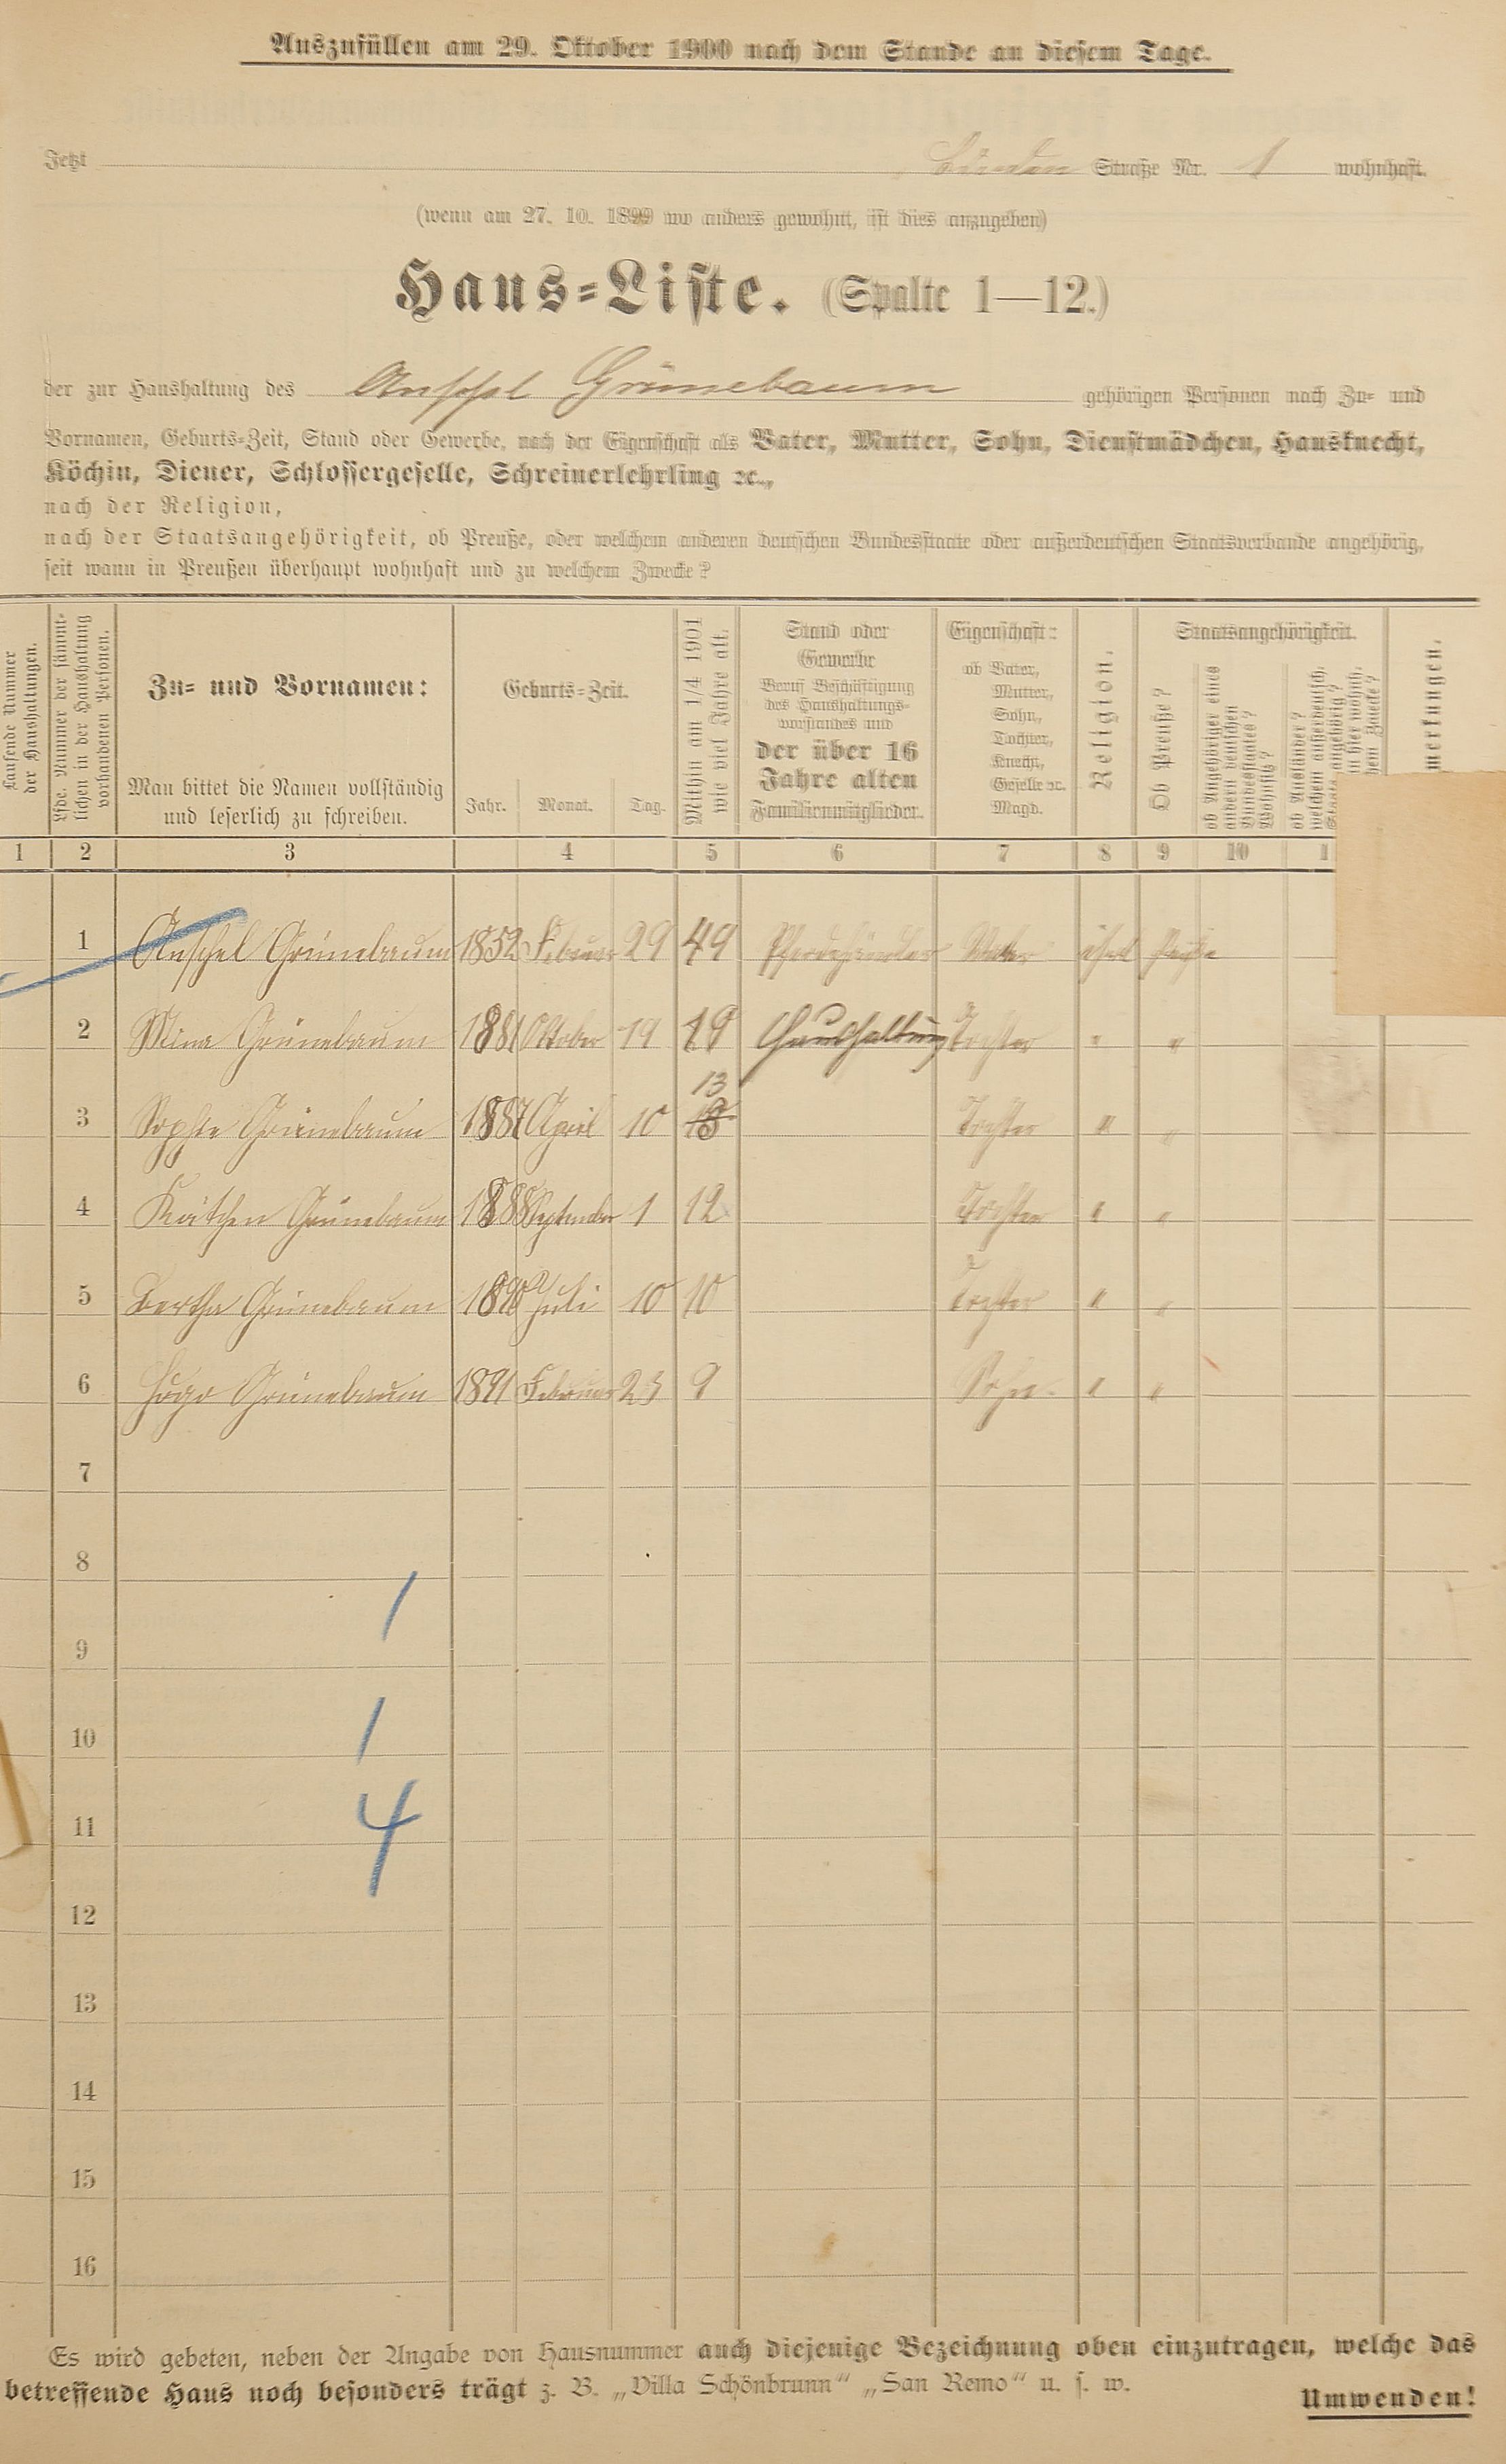 Auszufüllen am 29. Oktober 1900 nach dem Stande an diesem Tage.
Jetzt Straße Nr. 1 wohnhaft.
(wenn am 27. 10. 1899 wo anders gewohnt, ist dies anzugeben)
Haus=Liste. (Spalte 1—12.)
der zur Haushaltung des Anschel Grünebaum gehörigen Personen nach Zu= und
Vornamen, Geburts=Zeit, Stand oder Gewerbe, nach der Eigenschaft als Vater, Mutter, Sohn, Dienstmädchen, Hausknecht,
Köchin, Diener, Schlossergeselle, Schreinerlehrling ꝛc.,
nach der Religion,
nach der Staatsangehörigkeit, ob Preuße, oder welchem anderen deutschen Bundesstaate oder außerdeutschen Staatsverbande angehörig,
seit wann in Preußen überhaupt wohnhaft und zu welchem Zwecke?
Laufende Nummer der Haushaltungen.
Lfde. Nummer der sämmt=lichen in der Haushaltung vorhandenen Personen.
Zu= und Vornamen:
Man bittet die Namen vollständig
und leserlich zu schreiben.
Geburts=Zeit.
Jahr. Monat. Tag.
Mithin am 1/4 1901 wie viel Jahre alt.
Stand oder
Gewerbe
Beruf Beschäftigung
des Haushaltungs=
vorstandes und
der über 16
Jahre alten
Familienmitglieder.
Eigenschaft:
ob Vater,
Mutter,
Sohn,
Tochter,
Knecht,
Geselle ꝛc.
Magd.
Religion.
Staatsangehörigkeit.
Ob Preuße?
ob Angehöriger eines andern deutschen Bundesstaates? Wohnsitz?
ob Ausländer? welchem außerdeutsch.
merkungen.
1 2 3 4 5 6 7 8 9 10 1
1 Anschel Grünebaum 1852 Februar 29 49 Pferdehändler Vater isrl Preuße
2 Mina Grünebaum 1881 Oktober 19 19 Haushaltung Tochter " "
13
3 Sophie Grünebaum 1887 April 10 Tochter " "
4 Kätchen Grünebaum 1888 September 1 12 Tochter " "
5 Bertha Grünebaum 1890 Juli 10 10 Tochter " "
6 Hugo Grünebaum 1891 Februar 23 9 Sohn " "
7
8
1
9
1
10
4
11
12
13
14
15
16
Es wird gebeten, neben der Angabe von Hausnummer auch diejenige Bezeichnung oben einzutragen, welche das
betreffende Haus noch besonders trägt z. B. „Villa Schönbrunn“ „San Remo“ u. s. w.
Umwenden!